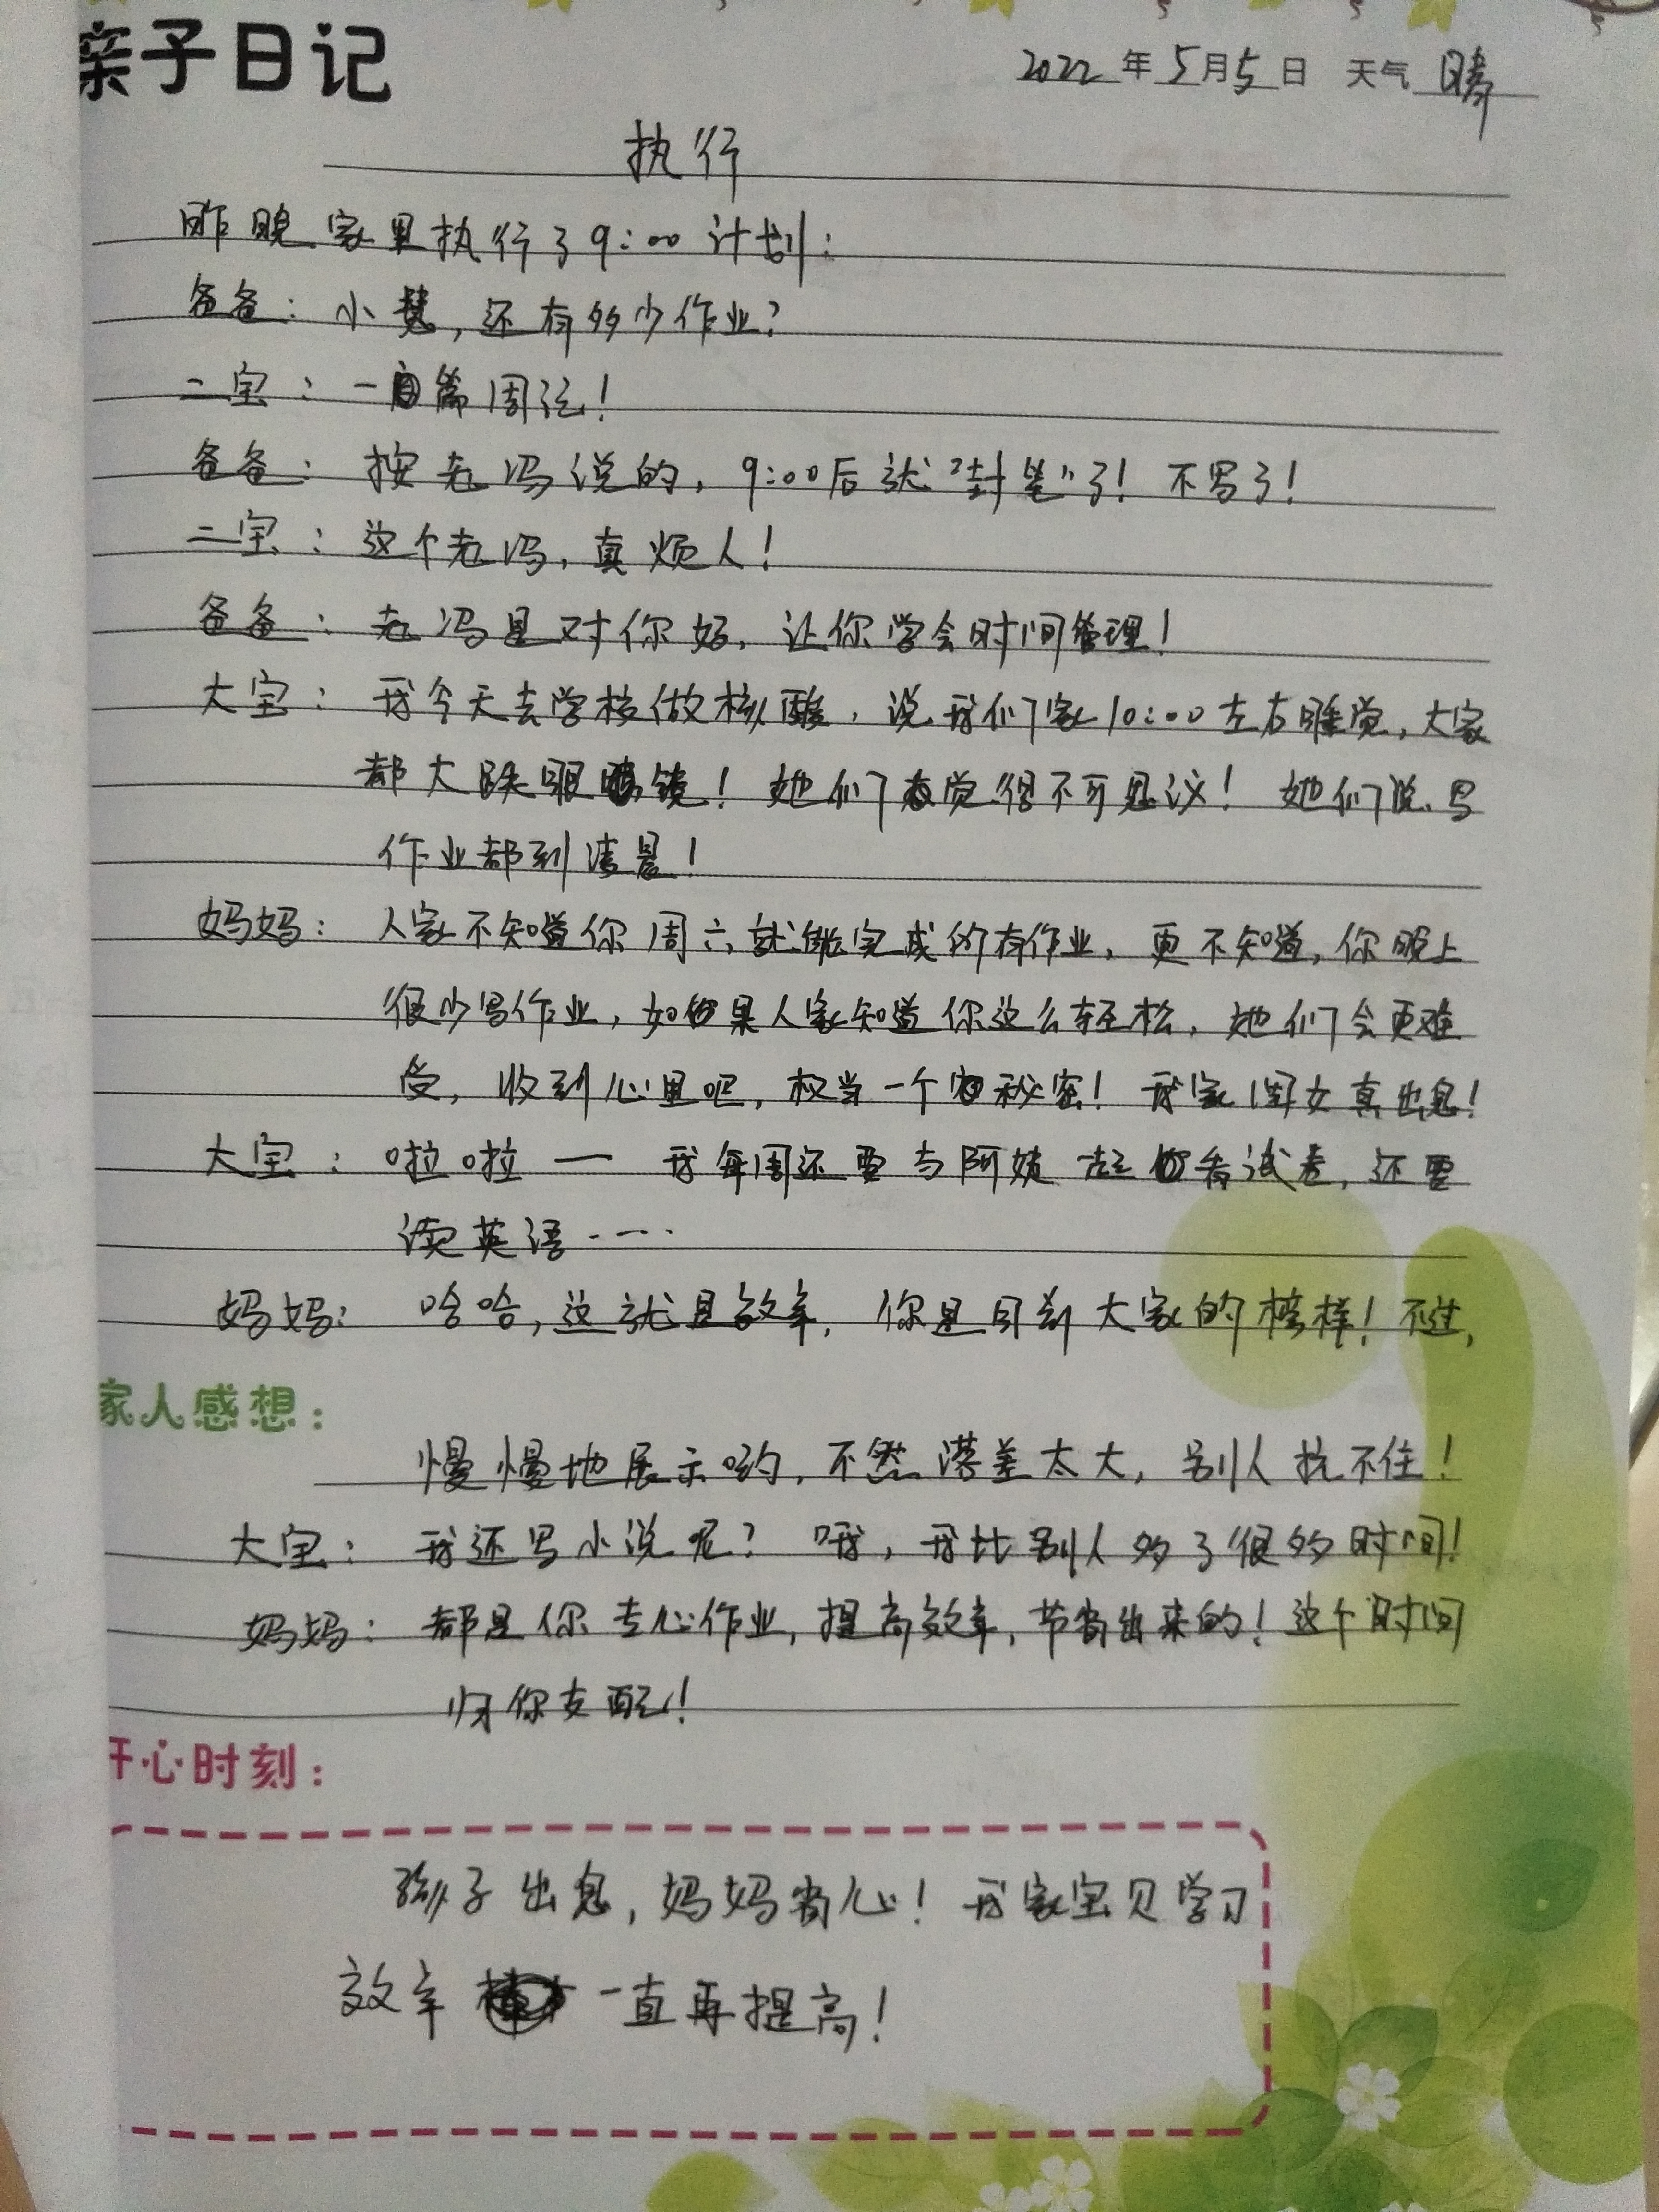 亲子日记
2022年5月5日 天气 晴
执行
昨晚家里执行了9:00计划:
爸爸: 小慧,还有多少作业?
二宝: 一篇周记!
爸爸: 按老冯说的,9:00后就"封笔"了! 不写了!
二宝: 这个老冯,真烦人!
爸爸: 老冯是对你好,让你学会时间管理!
大宝: 我今天去学校做核酸,说我们家10:00左右睡觉,大家
都大跌眼镜! 她们表觉得不可思议! 她们说写
作业都到凌晨!
妈妈: 人家不知道你周六就能完成所有作业,更不知道,你晚上
很少写作业,如果人家知道你这么轻松,她们会更难
受,收到心里吧,权当一个秘密! 我家闺女真出息!
大宝: 啦啦一 我每周还要与阿姨一起看试卷,还要
读英语……
妈妈: 哈哈,这就是效率,你是目前大家的榜样! 不过,
家人感想:
慢慢地展示哟,不然落差太大,别人抗不住!
大宝: 我还写小说呢? 哦,我比别人多了很多时间!
妈妈: 都是你专心作业,提高效率,节省出来的! 这个时间
归你支配!
开心时刻:
孩子出息,妈妈省心! 我家宝贝学习
效率一直再提高!